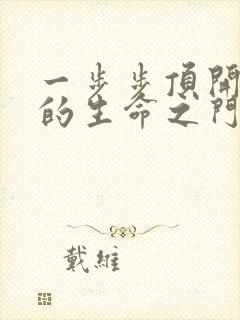 一步步頂開
的生命之門
戴維